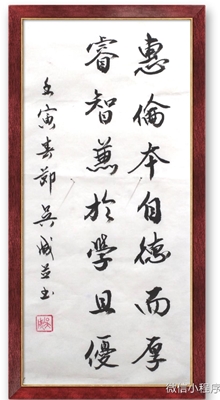 惠倫本自德而厚
睿智兼於學且優
壬寅春節 吳成益書
微信小程序